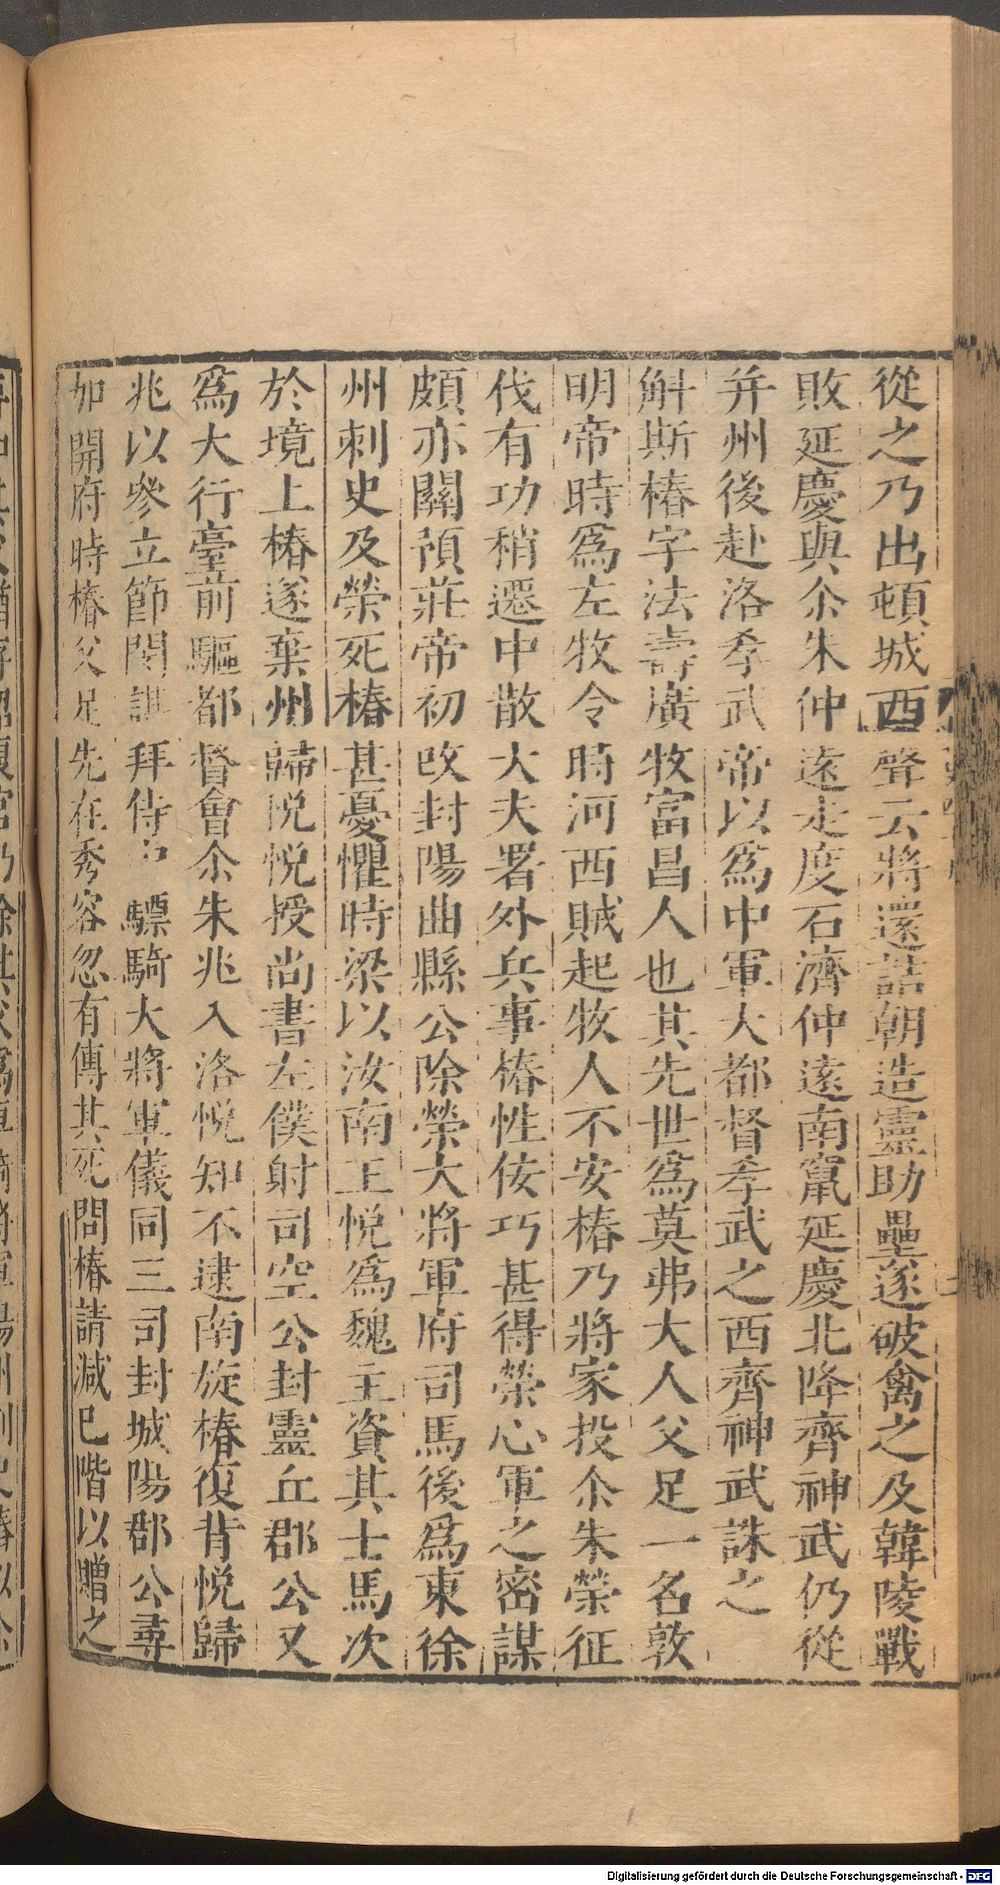 從之乃出頓城西聲云將還詰朝造靈助壘遂破禽之及韓陵戰
敗延慶與尒朱仲遠走度石濟仲遠南竄延慶北降齊神武仍從
并州後赴洛孝武帝以爲中軍大都督孝武之西齊神武誅之
斛斯椿字法壽廣牧富昌人也其先世爲莫弗大人父足一名敦
明帝時爲左牧令時河西賊起牧人不安椿乃將家投尒朱榮征
伐有功稍遷中散大夫署外兵事椿性佞巧甚得榮心軍之密謀
頗亦關預莊帝初改封陽曲縣公除榮大將軍府司馬後爲東徐
州刺史及榮死椿甚憂懼時梁以汝南王悅爲魏主資其士馬次
於境上椿遂棄州歸悅悅授尚書左僕射司空公封靈丘郡公又
爲大行臺前驅都督會尒朱兆入洛悅知不逮南旋椿復背悅歸
兆以參立節閔謀拜侍中驃騎大將軍儀同三司封城陽郡公尋
加開府時椿父足先在秀容忽有傳其死問椿請減已階以贈之
Digitalisierung gefördert durch die Deutsche Forschungsgemeinschaft - DFG